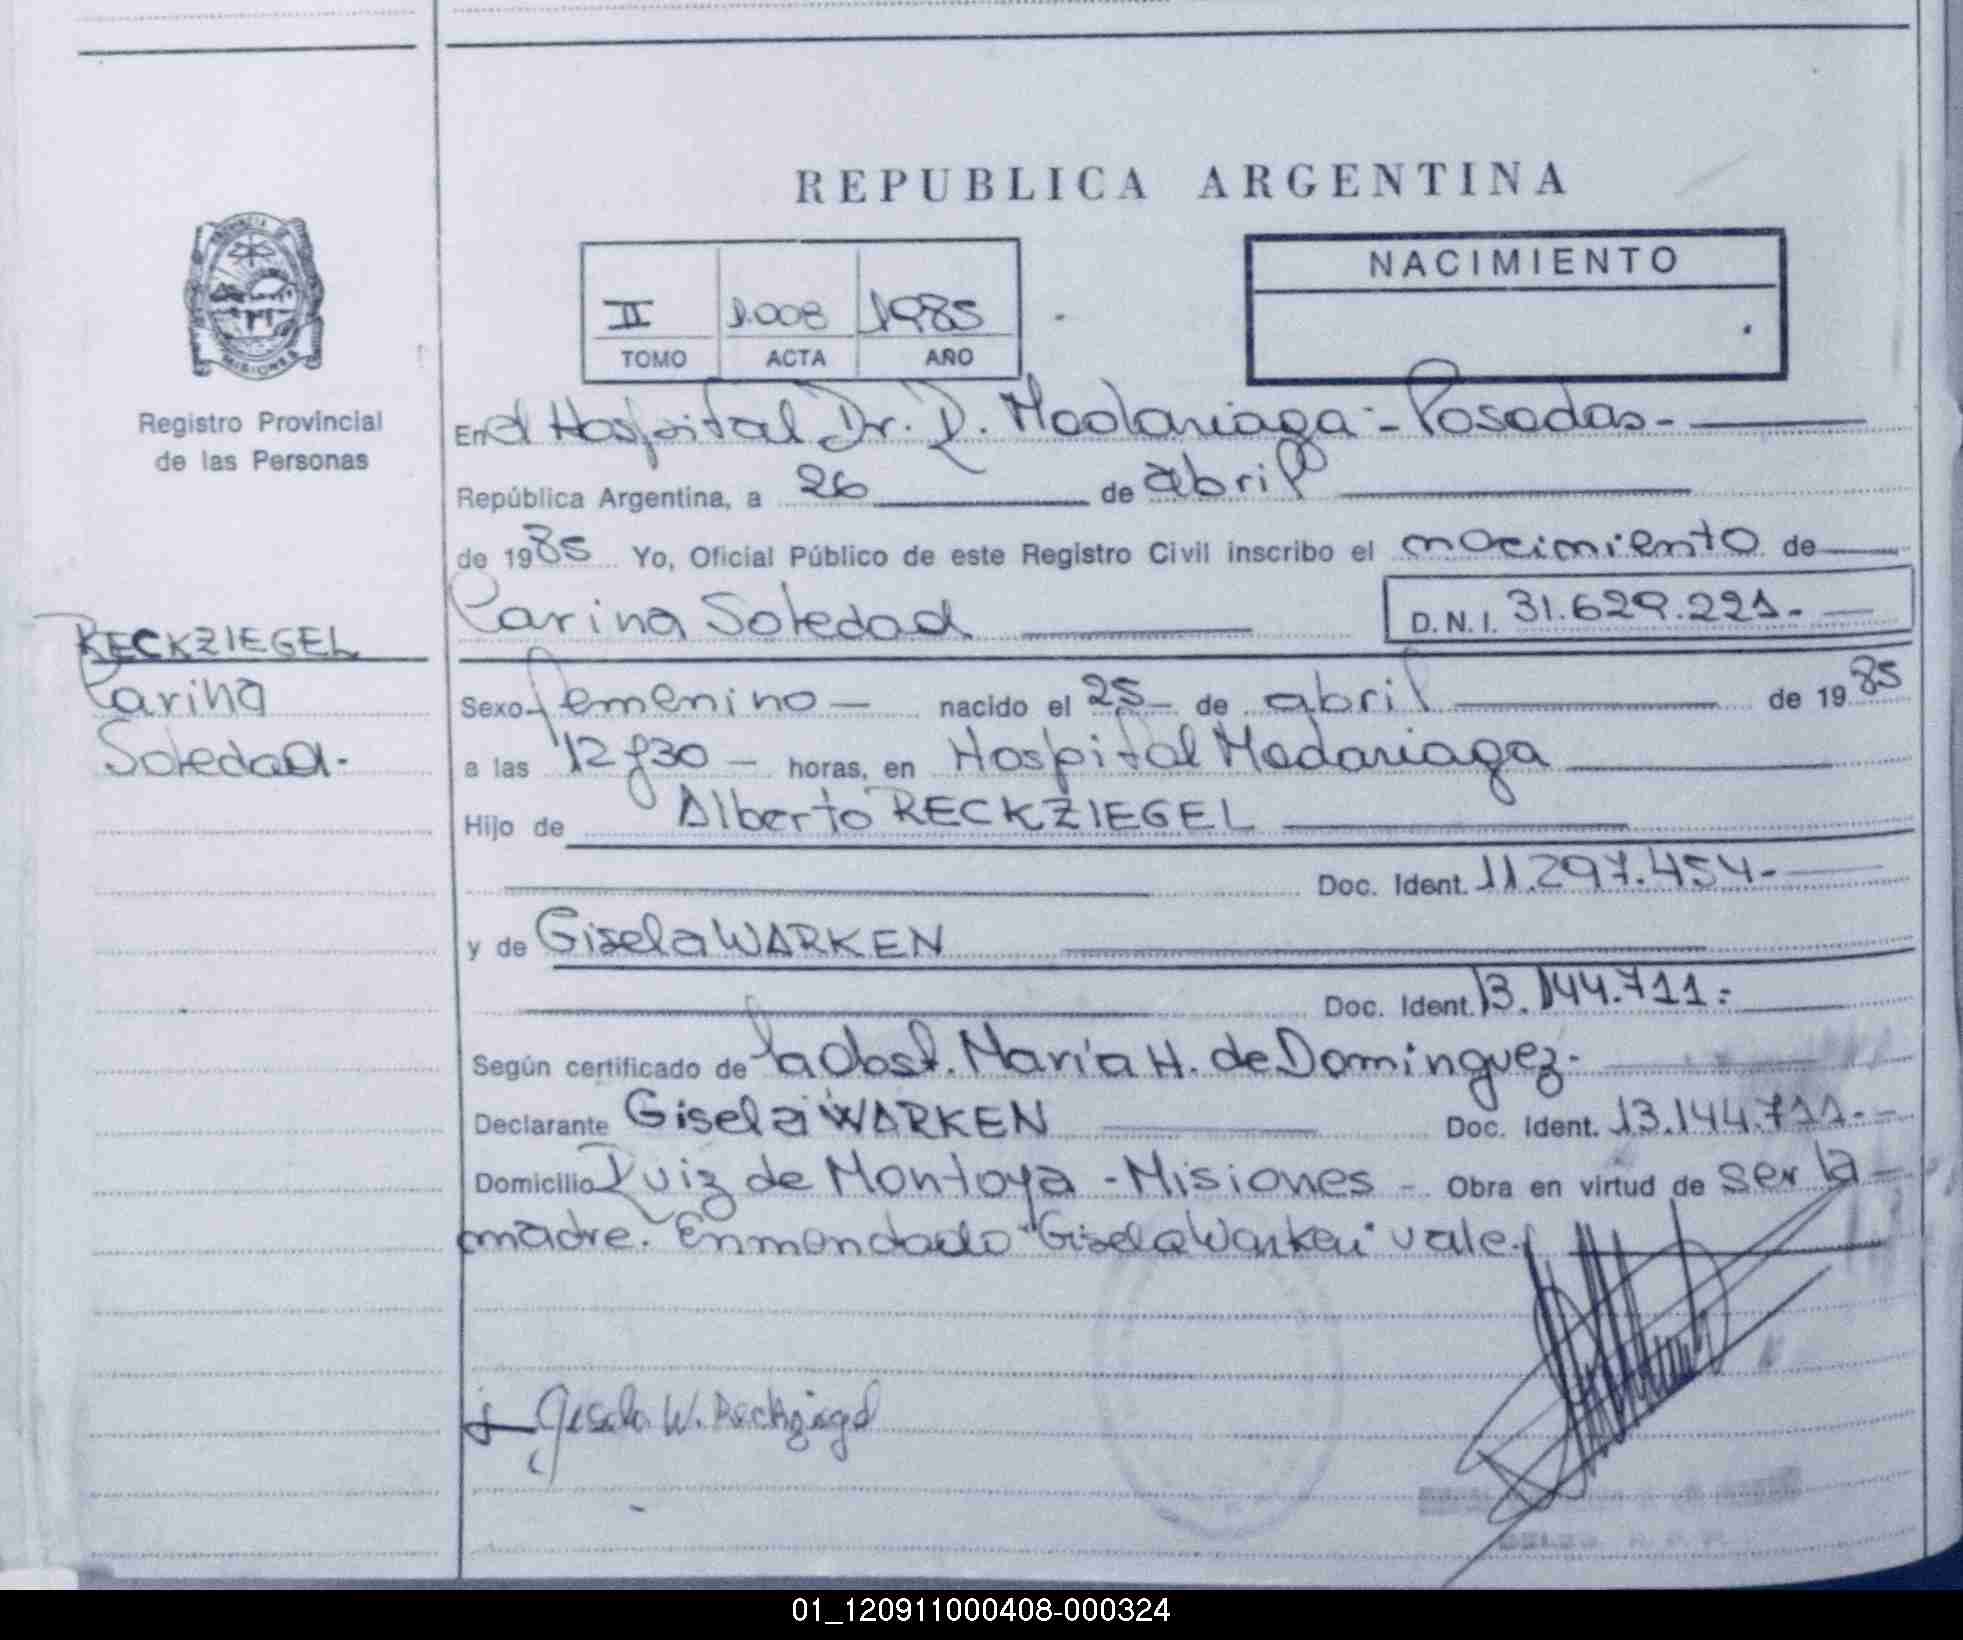 REPUBLICA ARGENTINA
PROVINCIA DE
MISIONES
Registro Provincial
de las Personas
II 1.008 1985
TOMO ACTA AÑO
NACIMIENTO
En el Hospital Dr. R. Madariaga - Posadas -
República Argentina, a 26 de abril
de 1985 Yo, Oficial Público de este Registro Civil inscribo el nacimiento de
Carina Soledad D.N.I. 31.629.221.-
RECKZIEGEL
Carina
Soledad.-
Sexo femenino — nacido el 25 - de abril de 1985
a las 12 y 30 — horas, en Hospital Madariaga
Hijo de Alberto RECKZIEGEL
Doc. Ident. 11.297.454.-
y de Gisela WARKEN
Doc. Ident. 13.144.711.-
Según certificado de la Obst. María H. de Dominguez.-
Declarante Gisela WARKEN Doc. Ident. 13.144.711.-
Domicilio Ruiz de Montoya - Misiones - Obra en virtud de ser la -
madre. Enmendado "Gisela Warken" vale.
Gisela W. Reckziegel
01_120911000408-000324